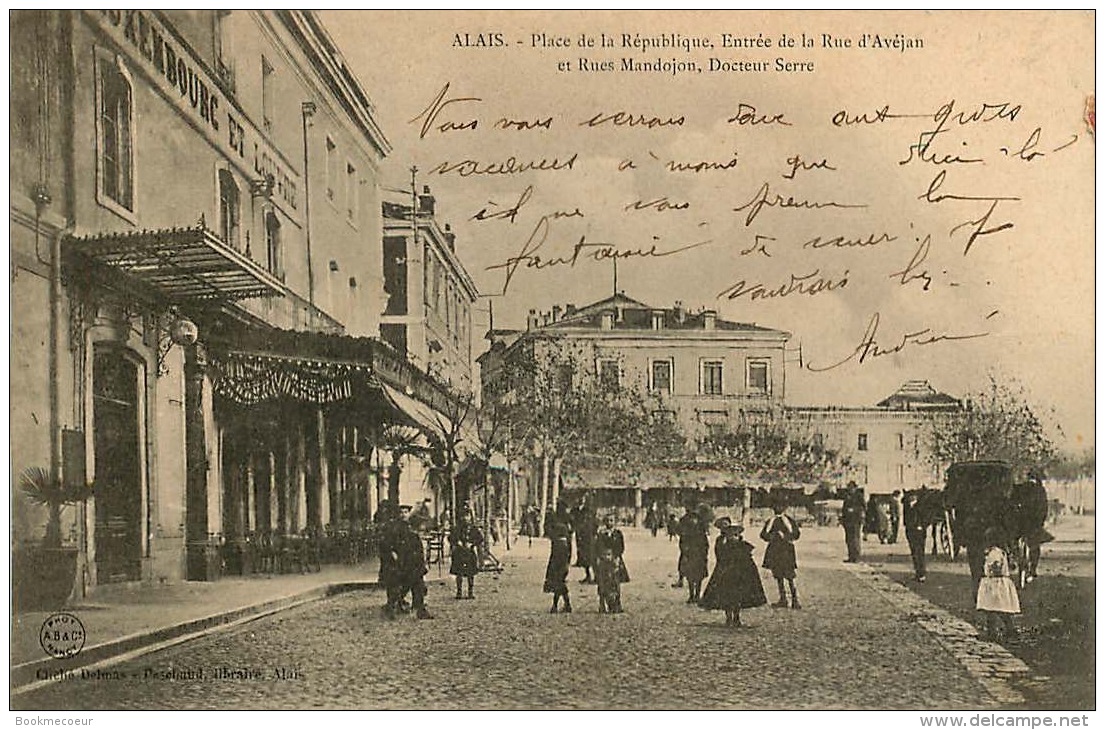 ALAIS. - Place de la République, Entrée de la Rue d'Avéjan
et Rues Mandojon, Docteur Serre
Nous vous serrons donc aux gros
vacances à moins que d'ici-là
il ne vous prenne la
fantaisie de
voudrais
LUXEMBOURG ET LOUVRE
PHOT
A.B & Cie
NANCY
Cliché Delmas - Peschaud, libraire, Alais
Bookmecoeur
www.delcampe.net